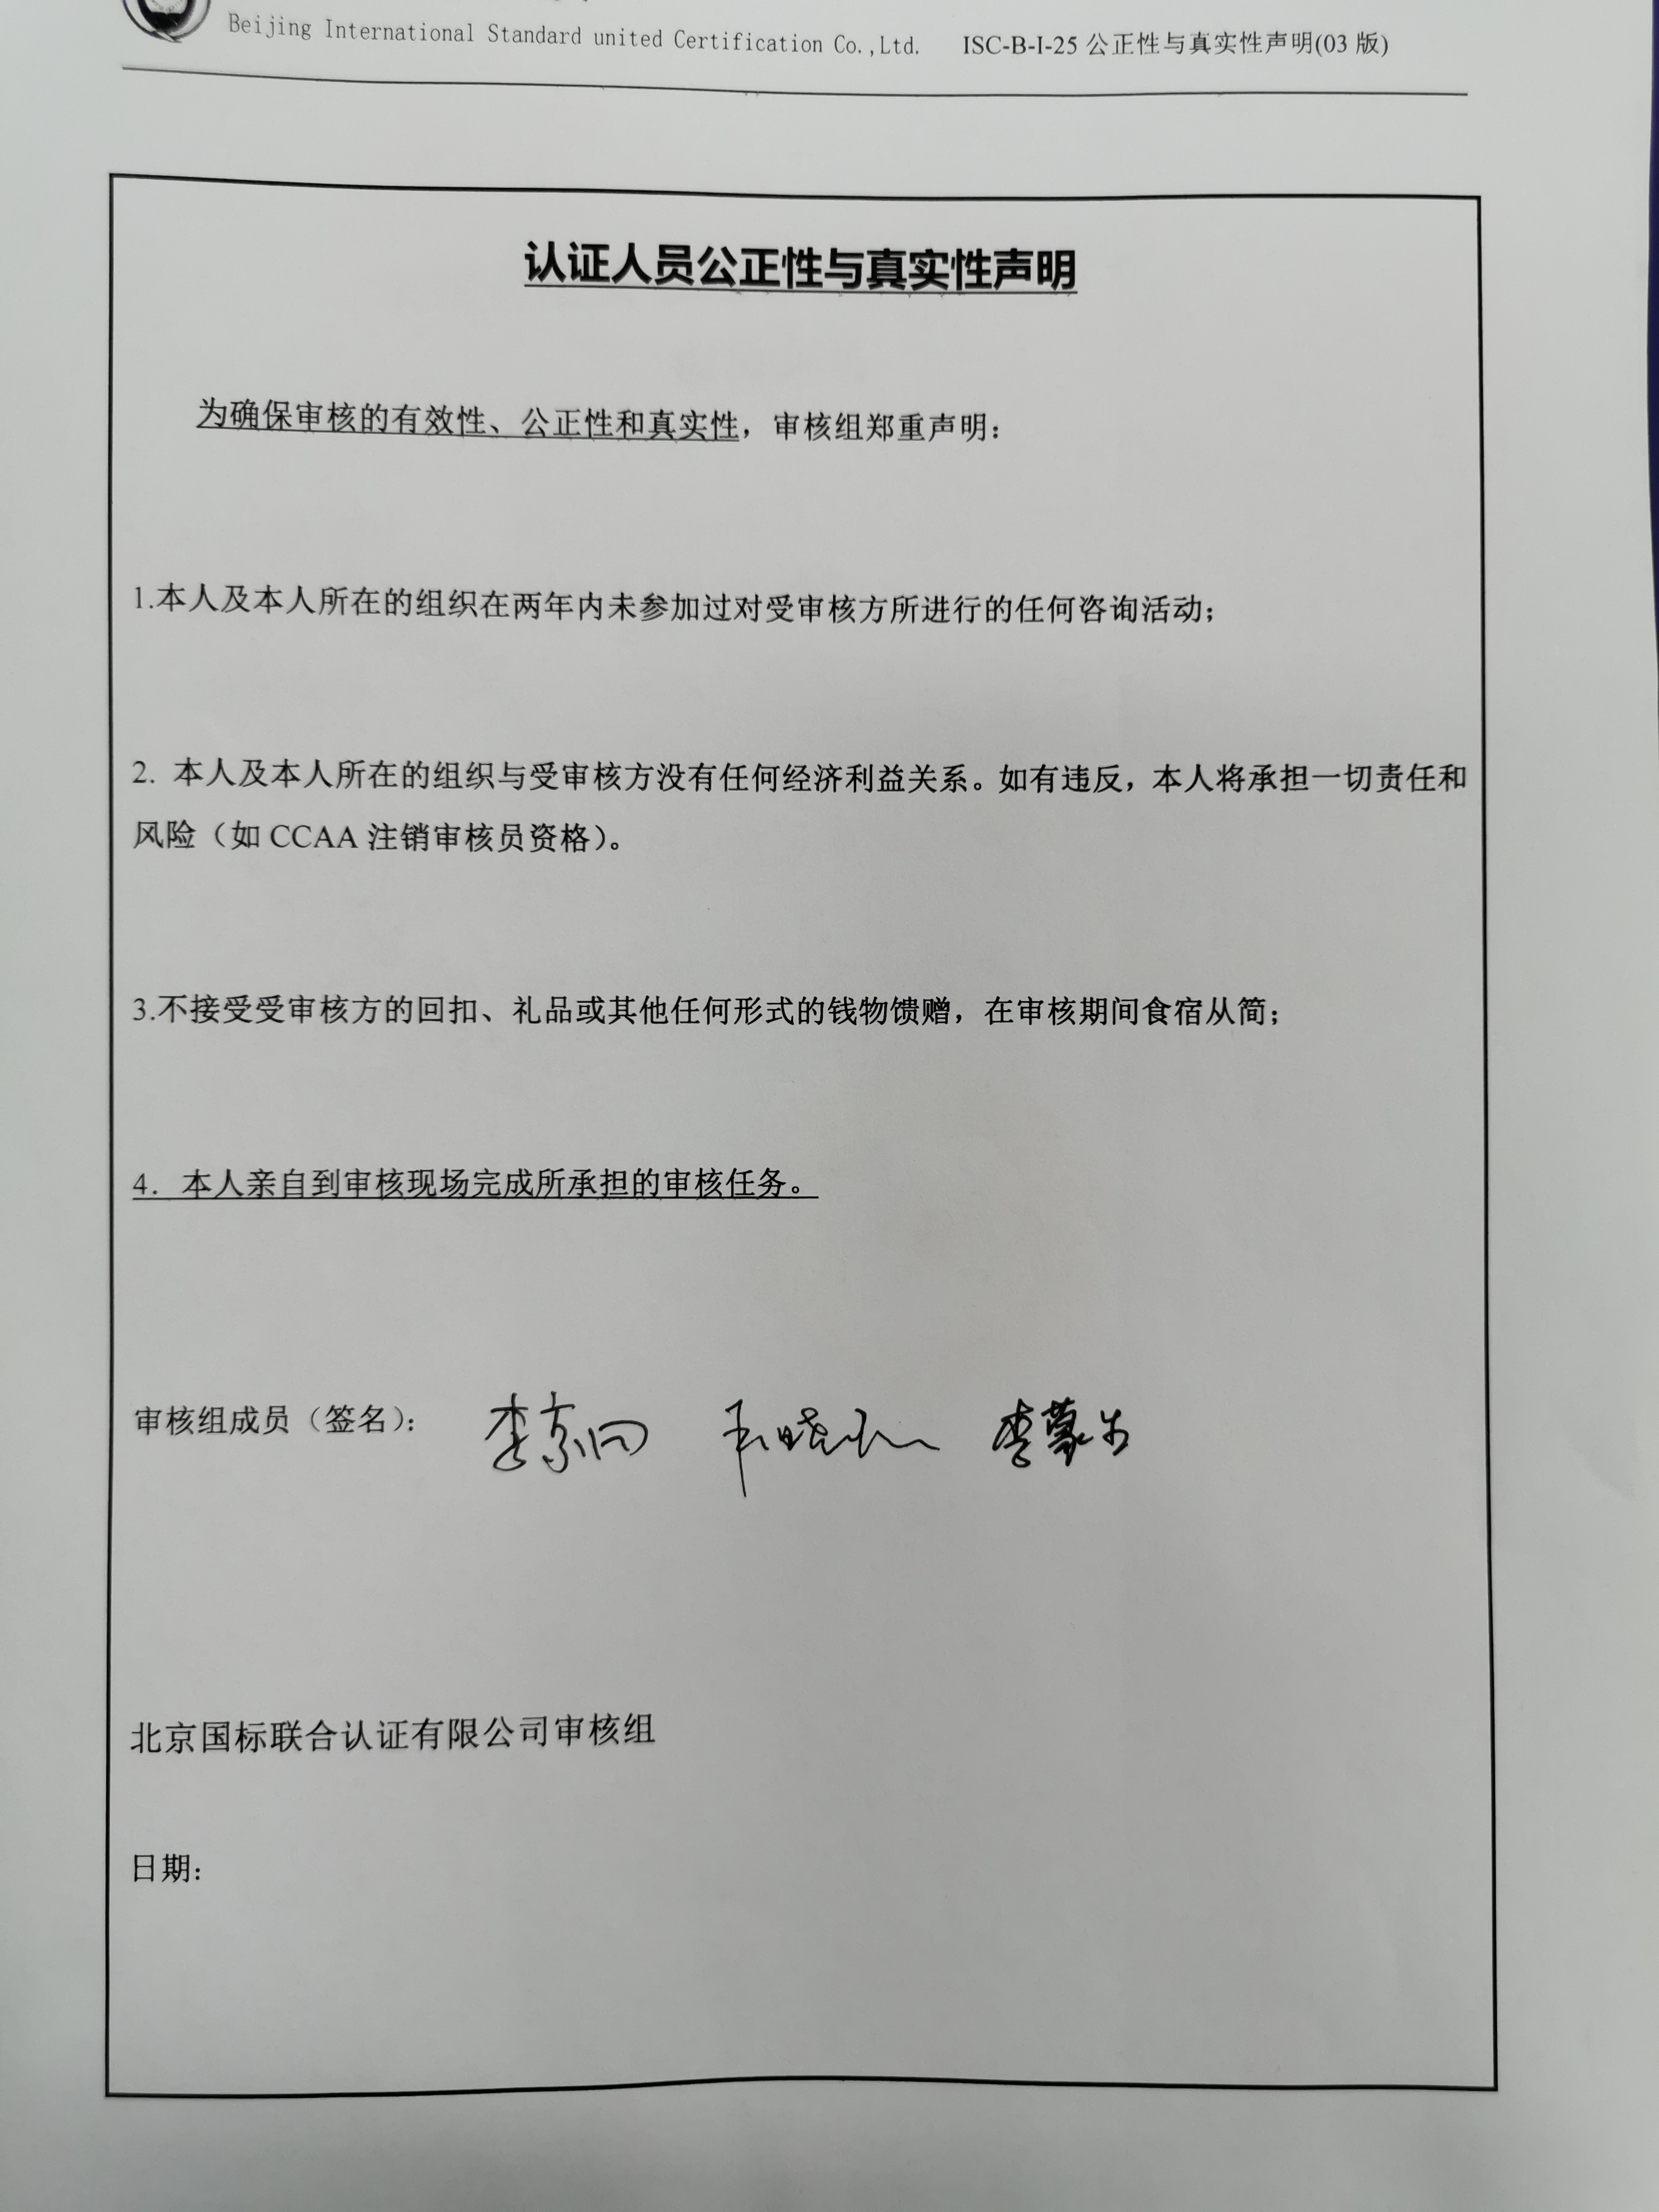 Beijing International Standard united Certification Co.,Ltd. ISC-B-I-25 公正性与真实性声明(03 版)
认证人员公正性与真实性声明
为确保审核的有效性、公正性和真实性，审核组郑重声明：
1.本人及本人所在的组织在两年内未参加过对受审核方所进行的任何咨询活动；
2. 本人及本人所在的组织与受审核方没有任何经济利益关系。如有违反，本人将承担一切责任和
风险（如 CCAA 注销审核员资格）。
3.不接受受审核方的回扣、礼品或其他任何形式的钱物馈赠，在审核期间食宿从简；
4. 本人亲自到审核现场完成所承担的审核任务。
审核组成员（签名）： 李京
北京国标联合认证有限公司审核组
日期：